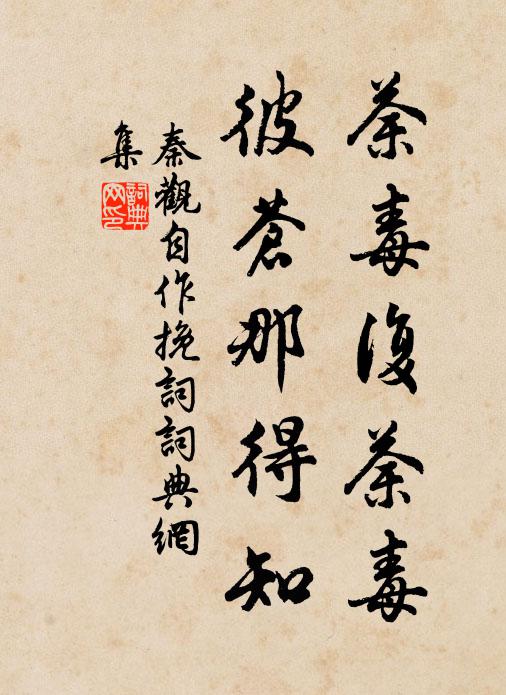 荼毒復荼毒
彼蒼那得知
秦觀自作挽詞詞典網
集
詞典網印